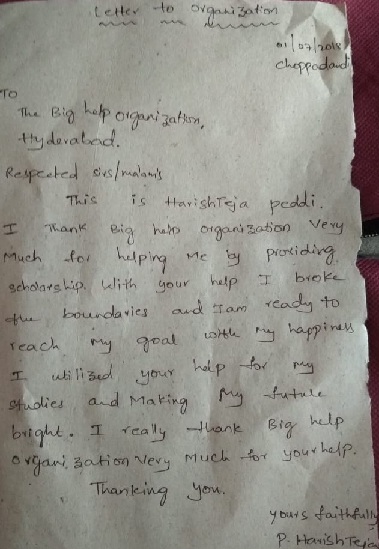 Letter to organization
01/07/2018
cheppadandi
TO
The Big help organization,
Hyderabad.
Respected sirs/madams
This is HarishTeja peddi.
I Thank Big help organization Very
Much for helping Me by providing
scholarship. With your help I broke
the boundaries and I am ready to
reach my goal with my happiness
I utilized your help for my
studies and Making My future
bright. I really thank Big help
organization Very Much for your help.
Thanking you.
yours faithfully
P. HarishTeja